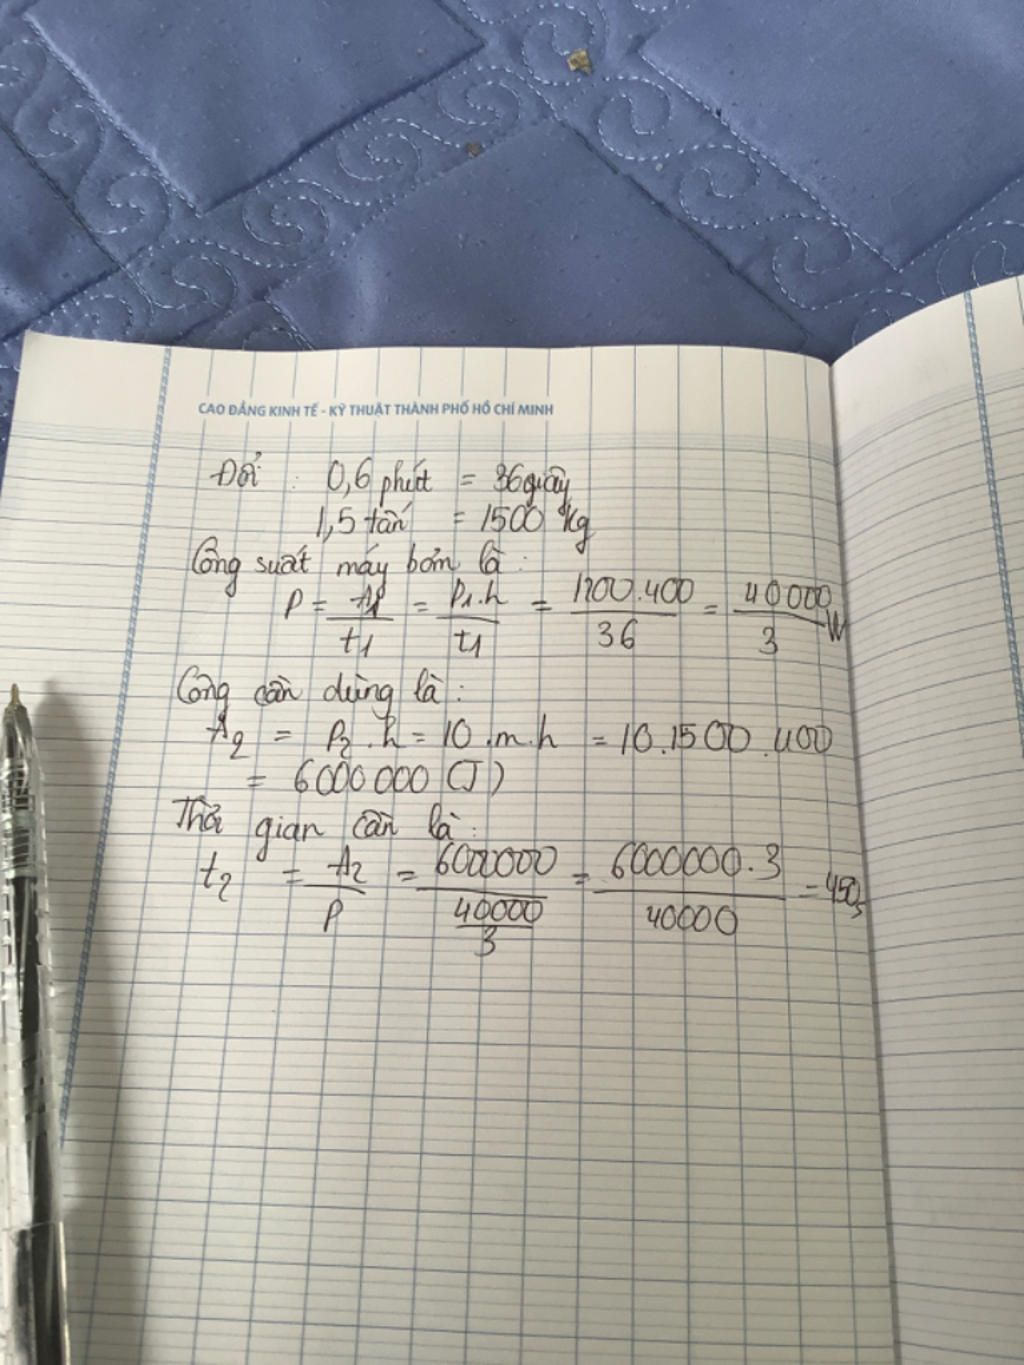 CAO ĐẲNG KINH TẾ - KỸ THUẬT THÀNH PHỐ HỒ CHÍ MINH
Đổi : 0,6 phút = 36 giây
1,5 tấn = 1500 kg
Công suất máy bơm là :
P = A1/t1 = P1.h/t1 = 1200.400/36 = 40000/3 W
Công cần dùng là :
A2 = P2.h = 10.m.h = 10.1500.400
= 6000000 (J)
Thời gian cần là :
t2 = A2/P = 6000000/(40000/3) = 6000000.3/40000 = 450s